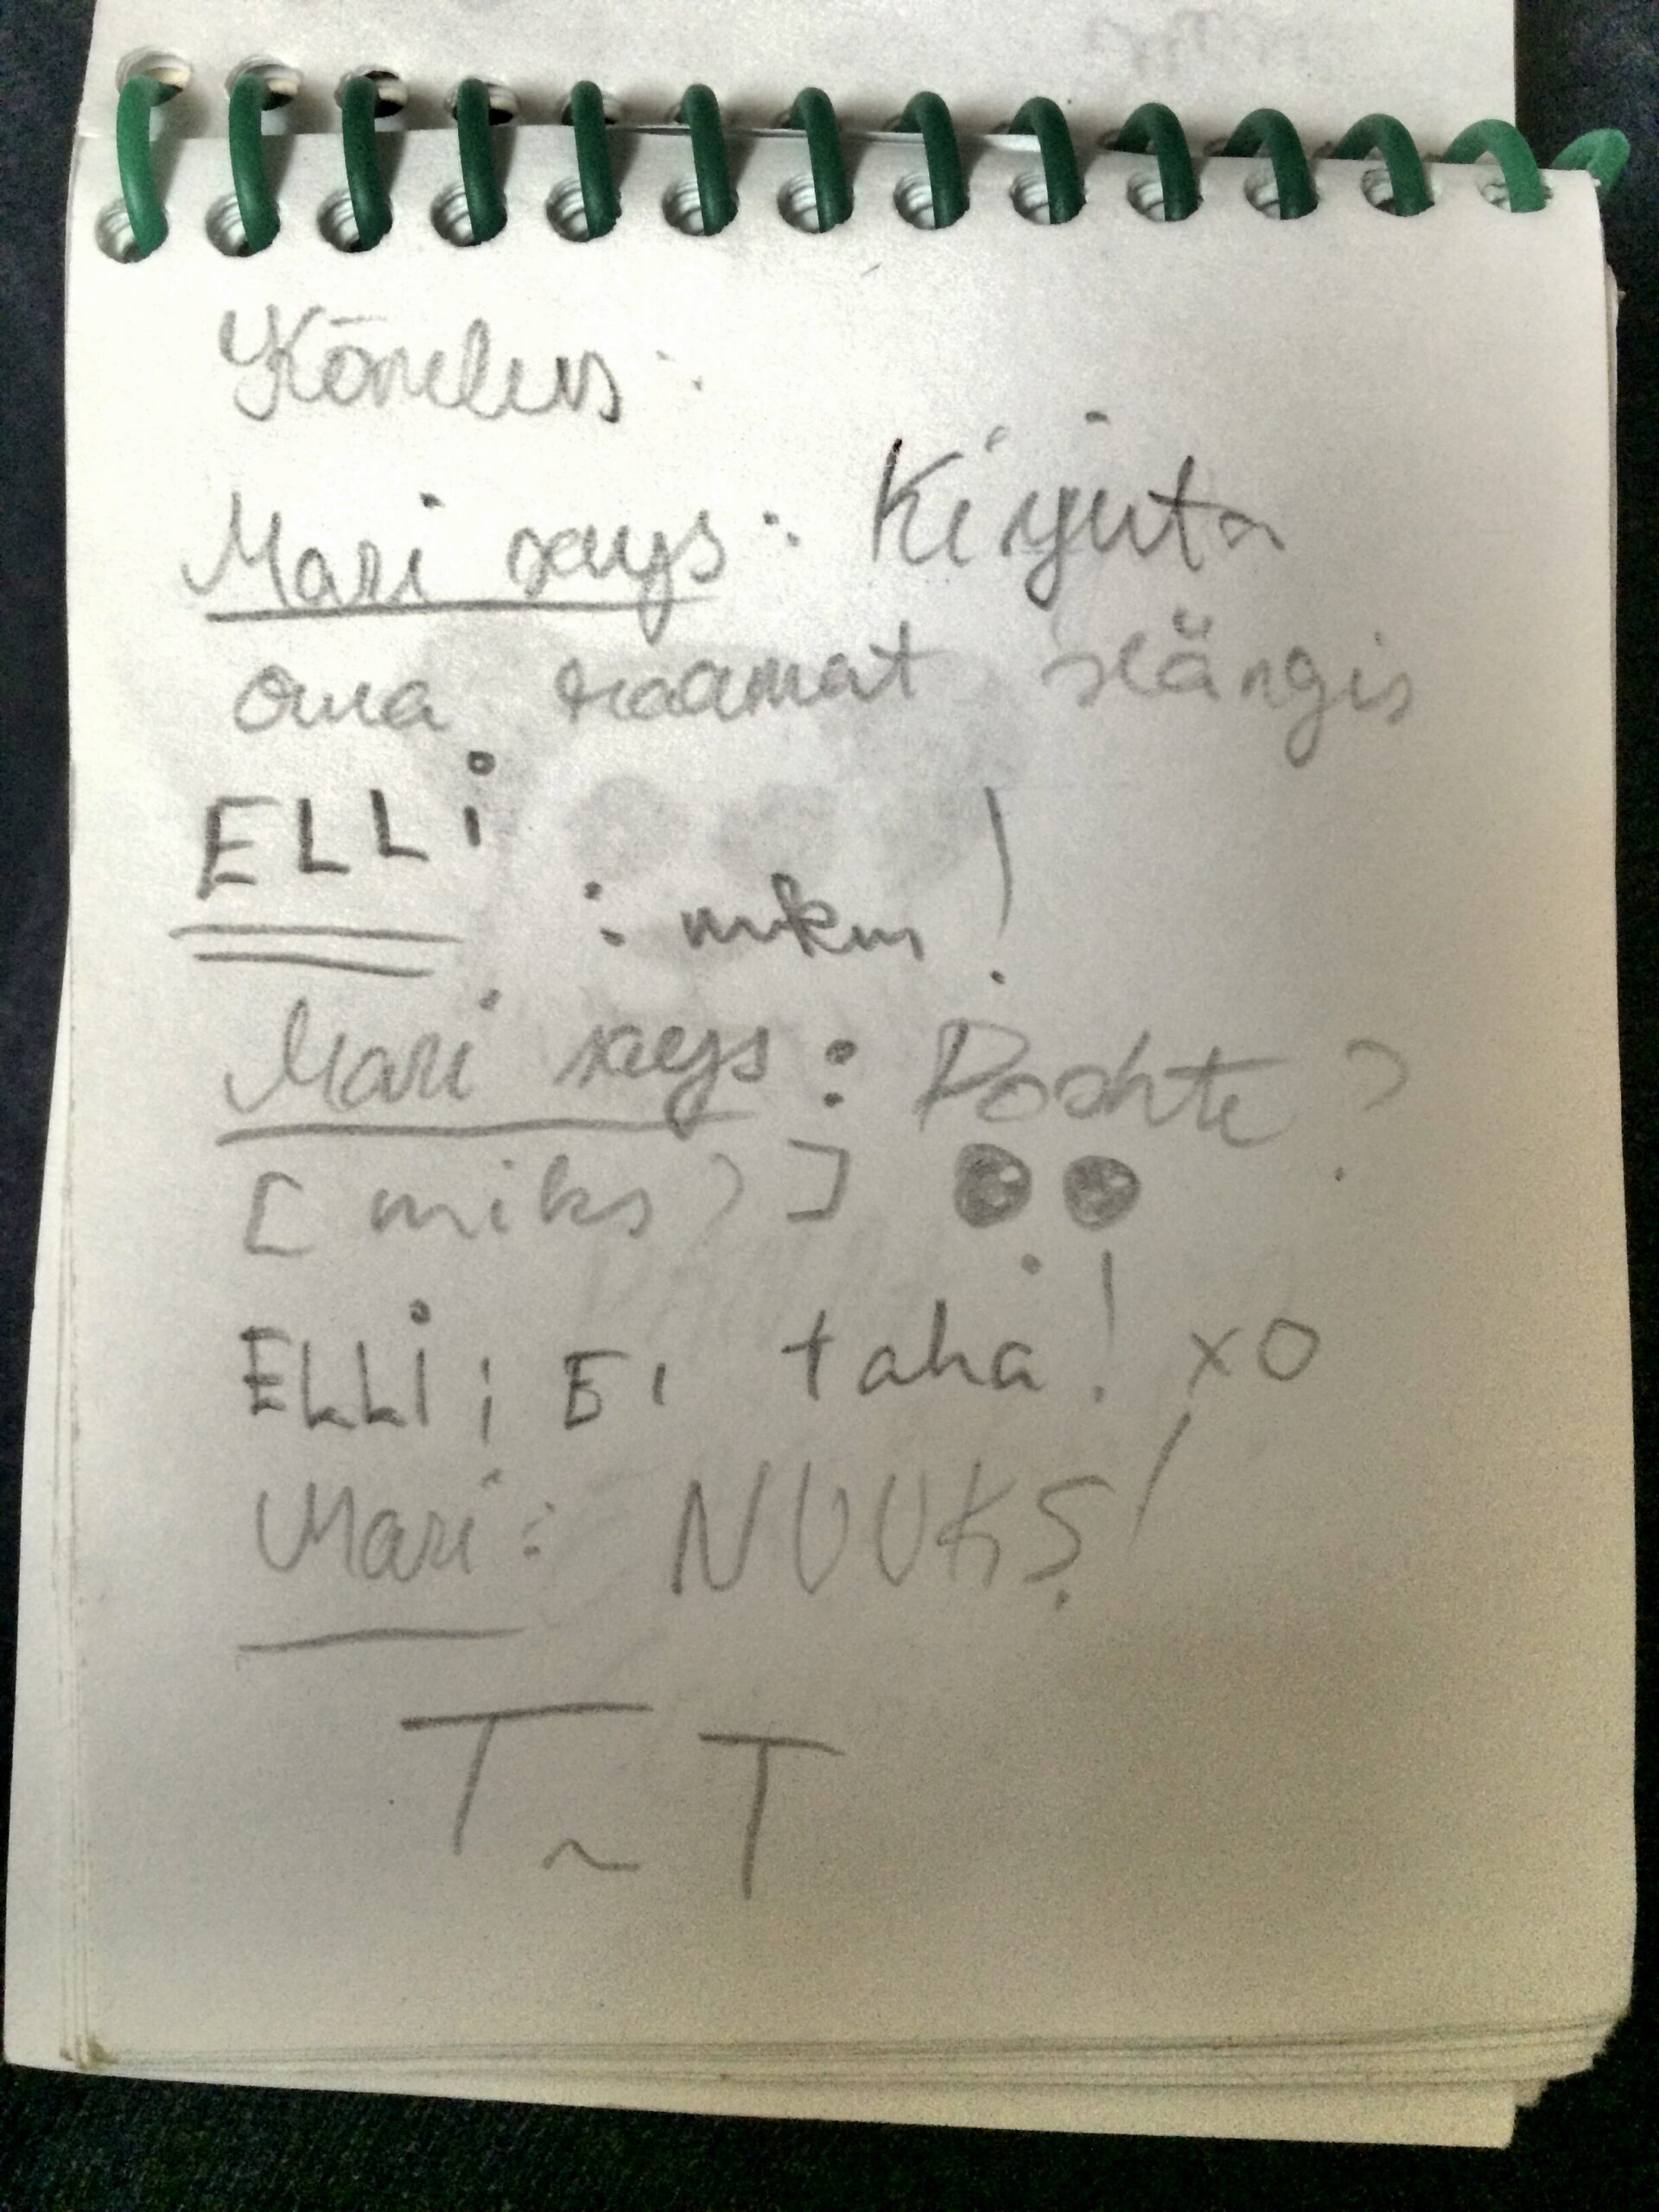 Kõnelus:
Mari says: Kirjuta
oma raamat slängis
ELLi
: mkm!
Mari says: Doshte?
[miks?]
ELLi: Ei taha! xO
Mari: NUUKS!
T~T